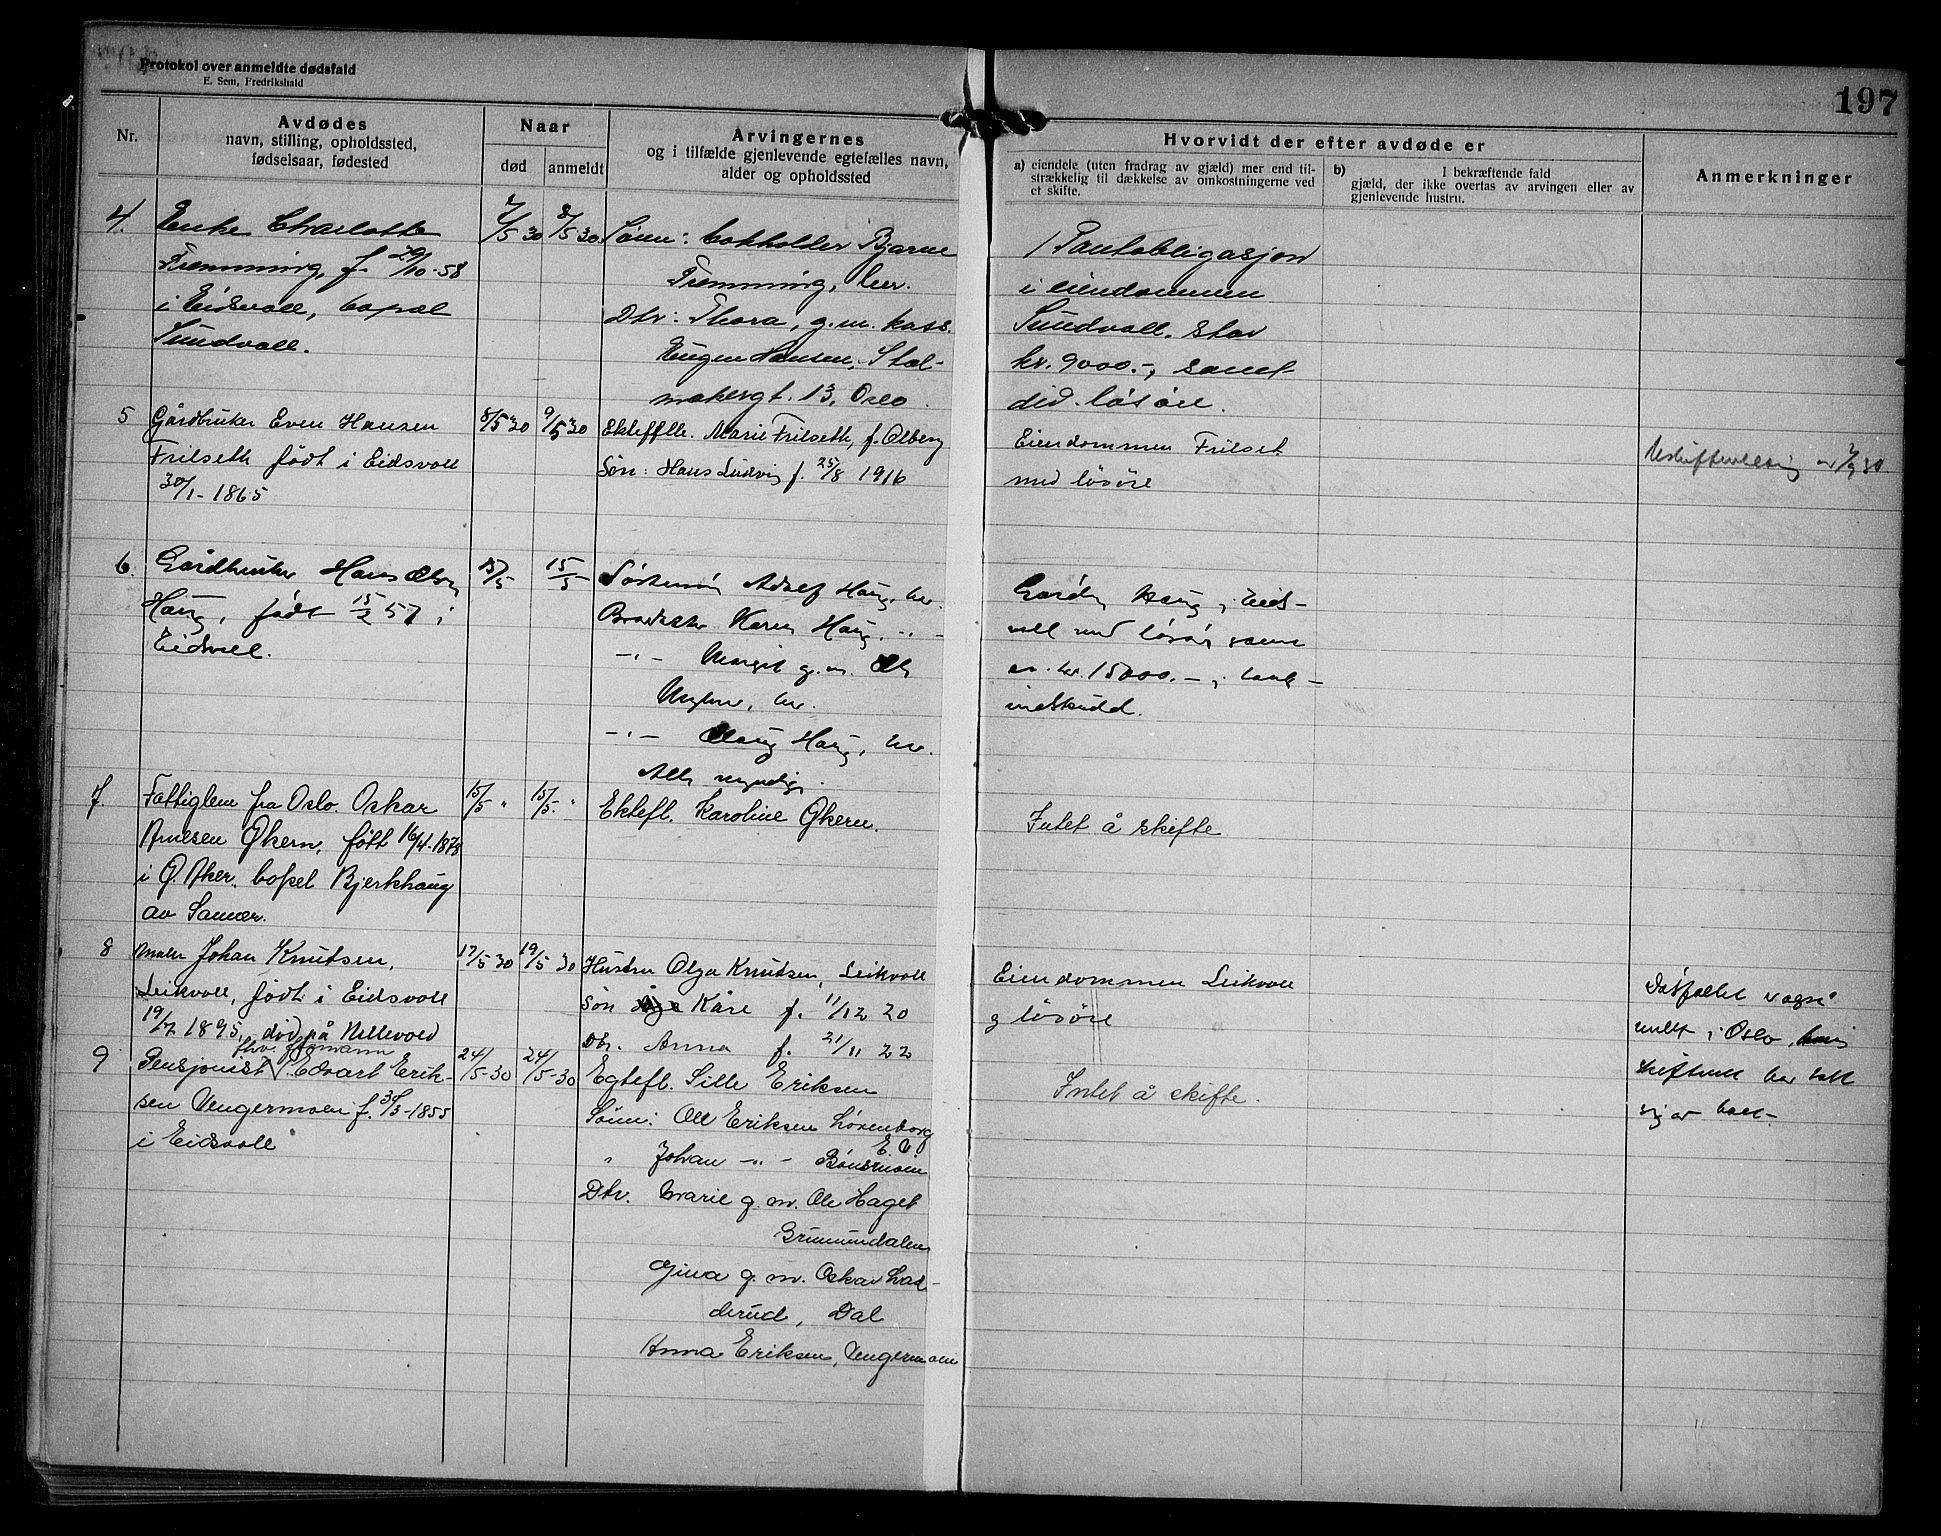 Protokol over anmeldte dødsfald
E. Sem, Fredrikshald
197
Nr.
Avdødes
navn, stilling, opholdssted,
fødselsaar, fødested
Naar
død
anmeldt
Arvingernes
og i tilfælde gjenlevende egtefælles navn,
alder og opholdssted
Hvorvidt der efter avdøde er
a) eiendele (uten fradrag av gjæld) mer end til-
strækkelig til dækkelse av omkostningerne ved
et skifte.
b) I bekræftende fald
gjæld, der ikke overtas av arvingen eller av
gjenlevende hustru.
Anmerkninger
4. Enke Charlotte
Fremming, f. 29/10-58
i Eidsvoll, bopæl
Sundvoll.
7/5 30
8/5 30
Sønn: bokholder Bjarne
Fremming, her.
Dtr: Thora, g.m. kass.
Eugen Hansen, Stal-
makergt. 13, Oslo.
1 Pantobligasjon
i eiendommen
Sundvoll, stor
kr. 9000.-, samt
did. løsøre.
5 Gårdbruker Even Hansen
Frilseth født i Eidsvoll
30/1-1865
8/5 30
9/5 30
Ekteffle. Marie Frilseth, f. Olberg
Søn: Hans Ludvig f. 25/8 1916
Eiendommen Frilset
med løsøre
6. Gårdbruker Hans Olsen
Haug, født 15/2 57 i
Eidsvoll.
15/5
15/5
Adolf Haug, her.
Karen Haug, -"-
-"- Margit g.m. Ole
her.
-"- Haug, her.
Alle myndige.
Gården Haug i Eids-
voll med løsøre samt
kr. 15000.- i bank-
indskudd.
7. Fattiglem fra Oslo. Oskar
Arnesen Økern, født 16/4-1878
i Ø. Aker, bopel Bjerkhaug
av
15/5 "
15/5. "
Ektefl. Karoline Økern.
Intet å skifte
8 Maler Johan Knutsen,
Leikvoll, født i Eidsvoll
19/7 1895, død på Ullevold
17/5 30
19/5 30
Hustru Olga Knutsen, Leikvoll
Søn Kåre f. 11/12 20
Dtr. Anna f. 21/11 22
Eiendommen Leikvoll
g løsøre
Dødsfallet
meldt i Oslo,
skifterett har tatt
sig av boet.
9 Pensjonist fhv. Edvart Erik-
sen Vengermoen f. 30/3-1855
i Eidsvoll
24/5-30
24/5-30
Egtefl. Sille Eriksen
Sønn: Ole Eriksen Lørenborg
E.V.
" Johan -"- Bønsmoen
Dtr. Marie g.m. Ole Haget
Brumundalen
Gina g.m. Oskar Lad-
derud, Dal
Anna Eriksen, Vengermoen
Intet å skifte.